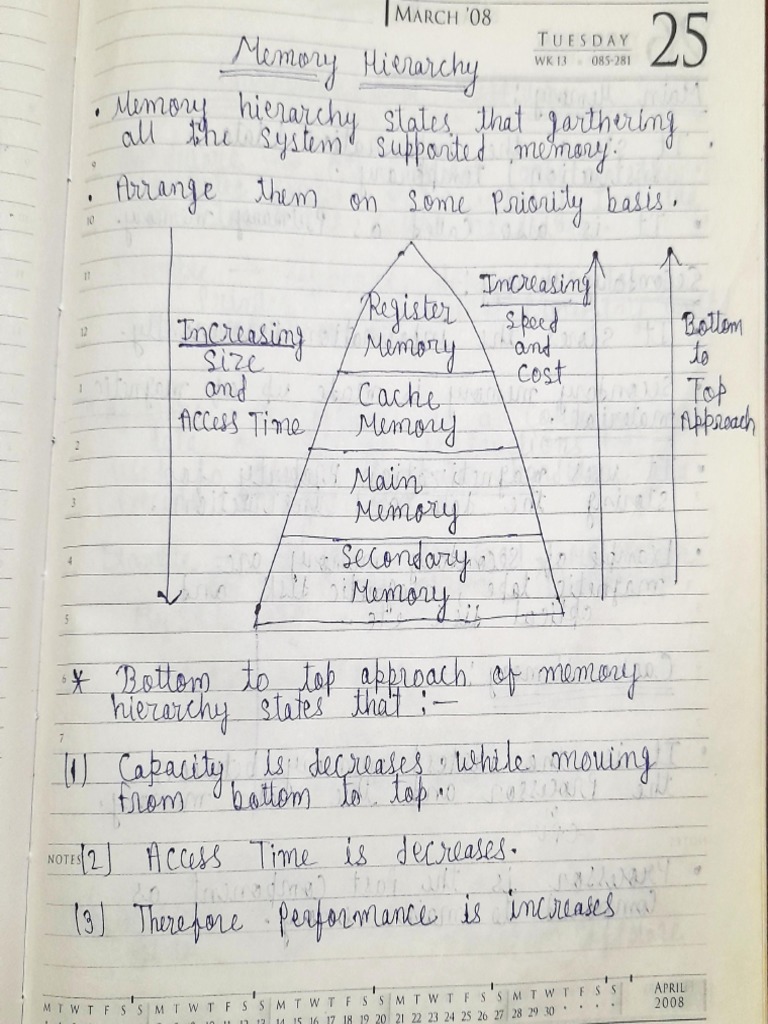 MARCH '08
TUESDAY
WK 13 085-281
25
Memory Hierarchy
• Memory hierarchy states that garthering
all the system supported memory.
• Arrange them on some Priority basis.
Increasing
Size
and
Access Time
Register
Memory
Cache
Memory
Main
Memory
Secondary
Memory
Increasing
Speed
and
Cost
Bottom
to
Top
Approach
* Bottom to top approach of memory
hierarchy states that :-
(1) Capacity is decreases while moving
from bottom to top.
NOTES
(2) Access Time is decreases.
(3) Therefore Performance is increases
M T W T F S S M T W T F S S M T W T F S S M T W T F S S M T W T F S S
14 15 16 17 18 19 20 21 22 23 24 25 26 27 28 29 30
APRIL
2008